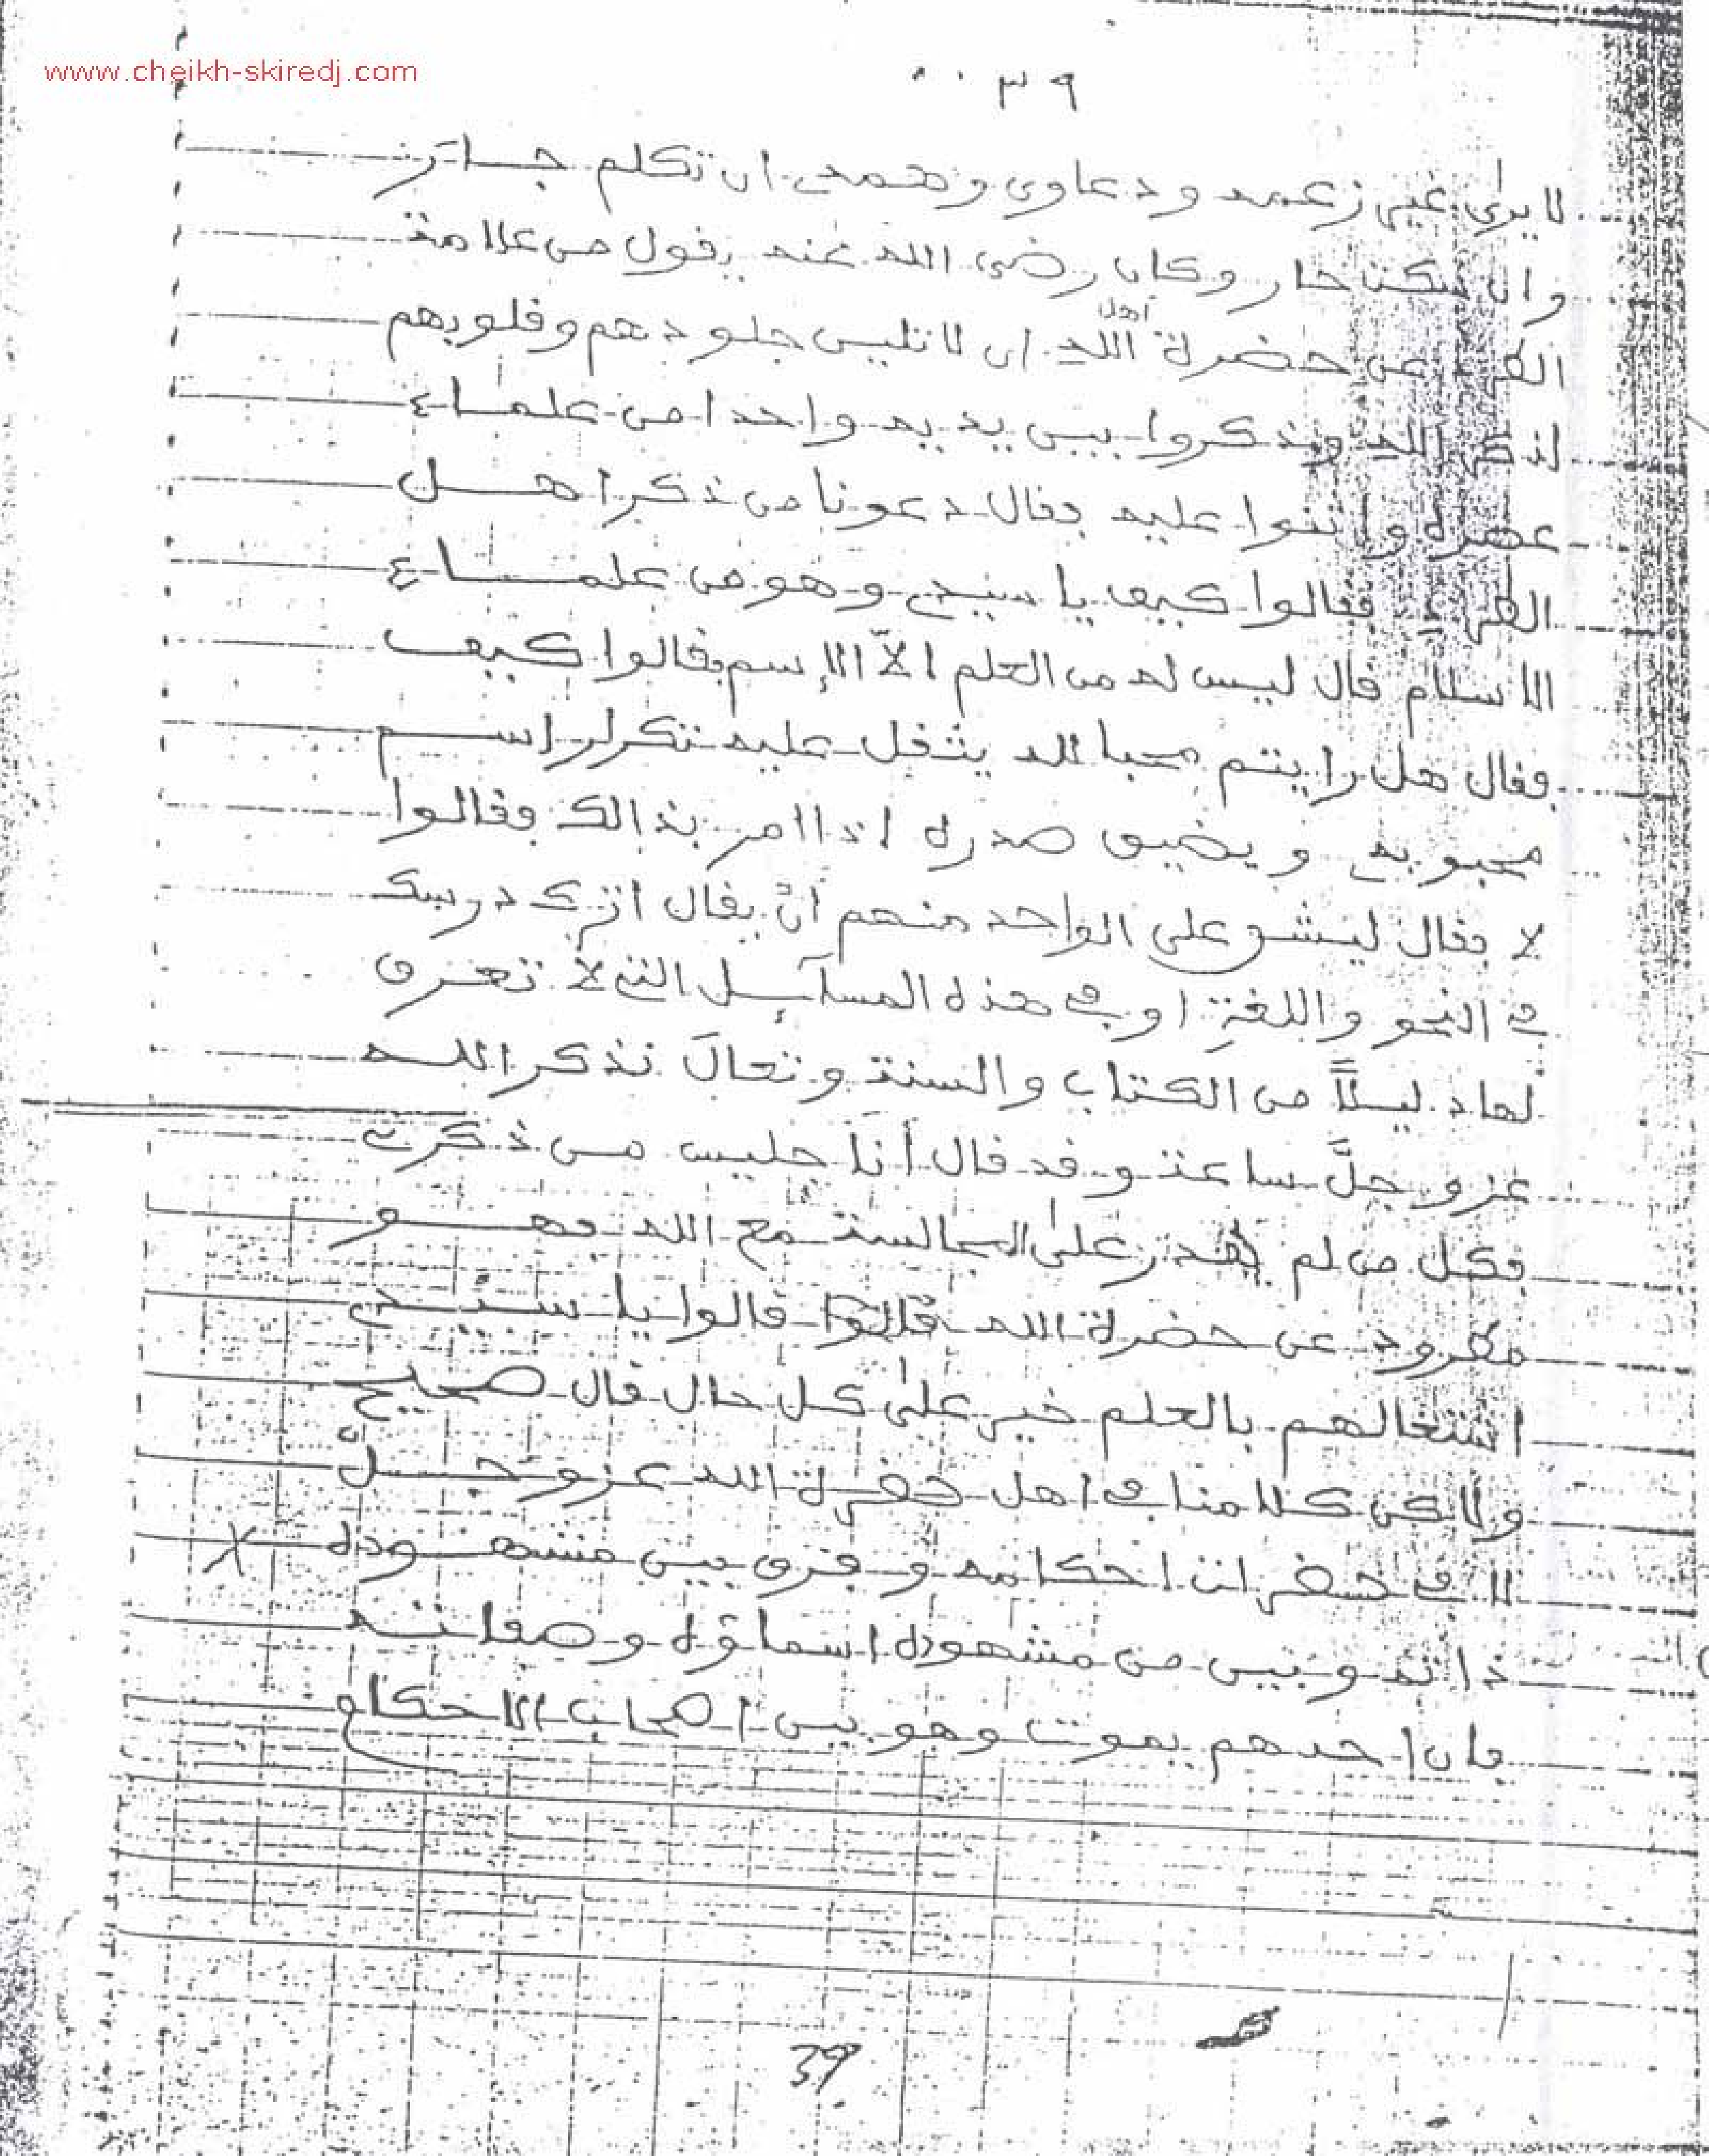 www.cheikh-skiredj.com
٣٩
لا يرى غير زعمه ودعاوى وهمه ان تكلم جائر
وان سكت حار وكان رضي الله عنه يقول من علامة
الطرد عن حضرة الله اهل ان لا تلين جلودهم وقلوبهم
لذكر الله وذكروا بين يديه واحدا من علماء
عصره واثنوا عليه فقال دعونا من ذكر اهل
الطرد فقالوا كيف يا سيدي وهو من علماء
الاسلام قال ليس له من العلم الاّ الإسم فقالوا كيف
فقال هل رايتم محبا لله يثقل عليه تكرار اسم
محبوبه ويضيق صدره اذا امر بذالك فقالوا
لا فقال ليشق على الواحد منهم أنْ يقال اترك درسك
في النحو واللغةِ او في هذه المسآئل التي لا تعرف
لها دليلاً من الكتاب والسنة وتعالَ نذكر الله
عز وجلَّ ساعة وقد قال أنَا جليس من ذكرني
فكل من لم يقدر على المجالسة مع الله فهو
مطرود عن حضرة الله قالوا يا سيدي
اشتغالهم بالعلم خير على كل حال قال صحيح
ولاكن كلامنا في اهل حضرة الله عز وجلّ
لا في حضرات احكامه وفرق بين مشهوده
ذاته وبين من مشهوده اسماؤه وصفاته
فان احدهم يموت وهو بين اصحاب الاحكام
39